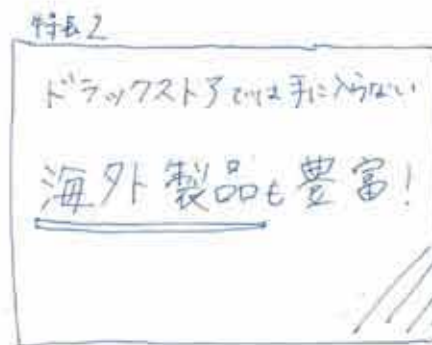 特長2
ドラックストアでは手に入らない
海外製品も豊富!